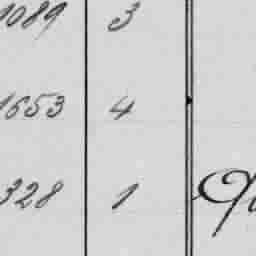 1089 3
1653 4
328 1